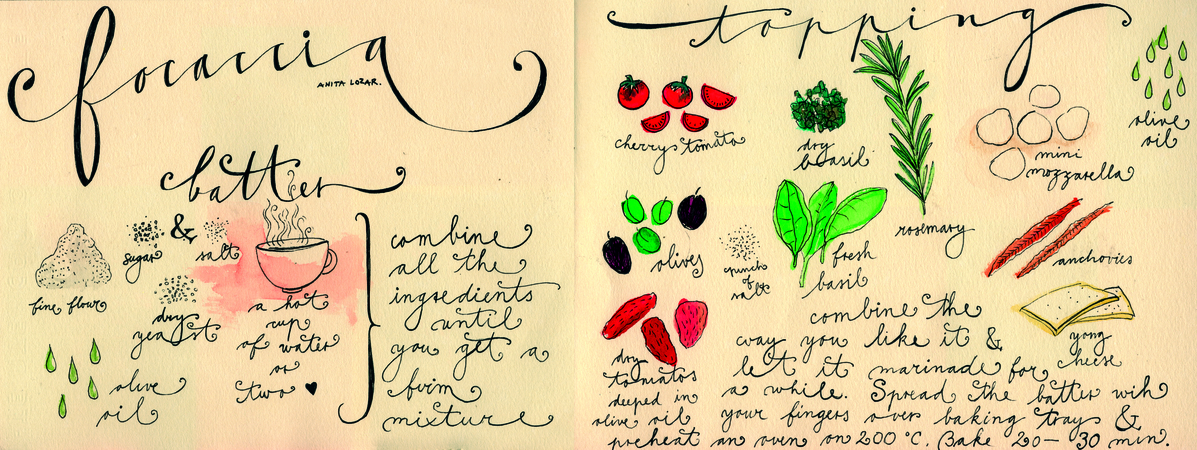 focaccia
ANITA LOZAR.
batter
sugar & salt
fine flour
dry
yeast
a hot
cup
of water
or
two
olive
oil
combine
all the
ingredients
until
you get a
firm
mixture
topping
cherry tomato
dry
basil
rosemary
mini
mozzarella
olive
oil
olives
cpunch
of
salt
fresh
basil
anchovies
yong
cheese
dry
tomatos
deeped in
olive oil
combine the
way you like it &
let it marinade for
a while. Spread the batter wih
your fingers over baking trays &
preheat an oven on 200 °C. Bake 20- 30 min.